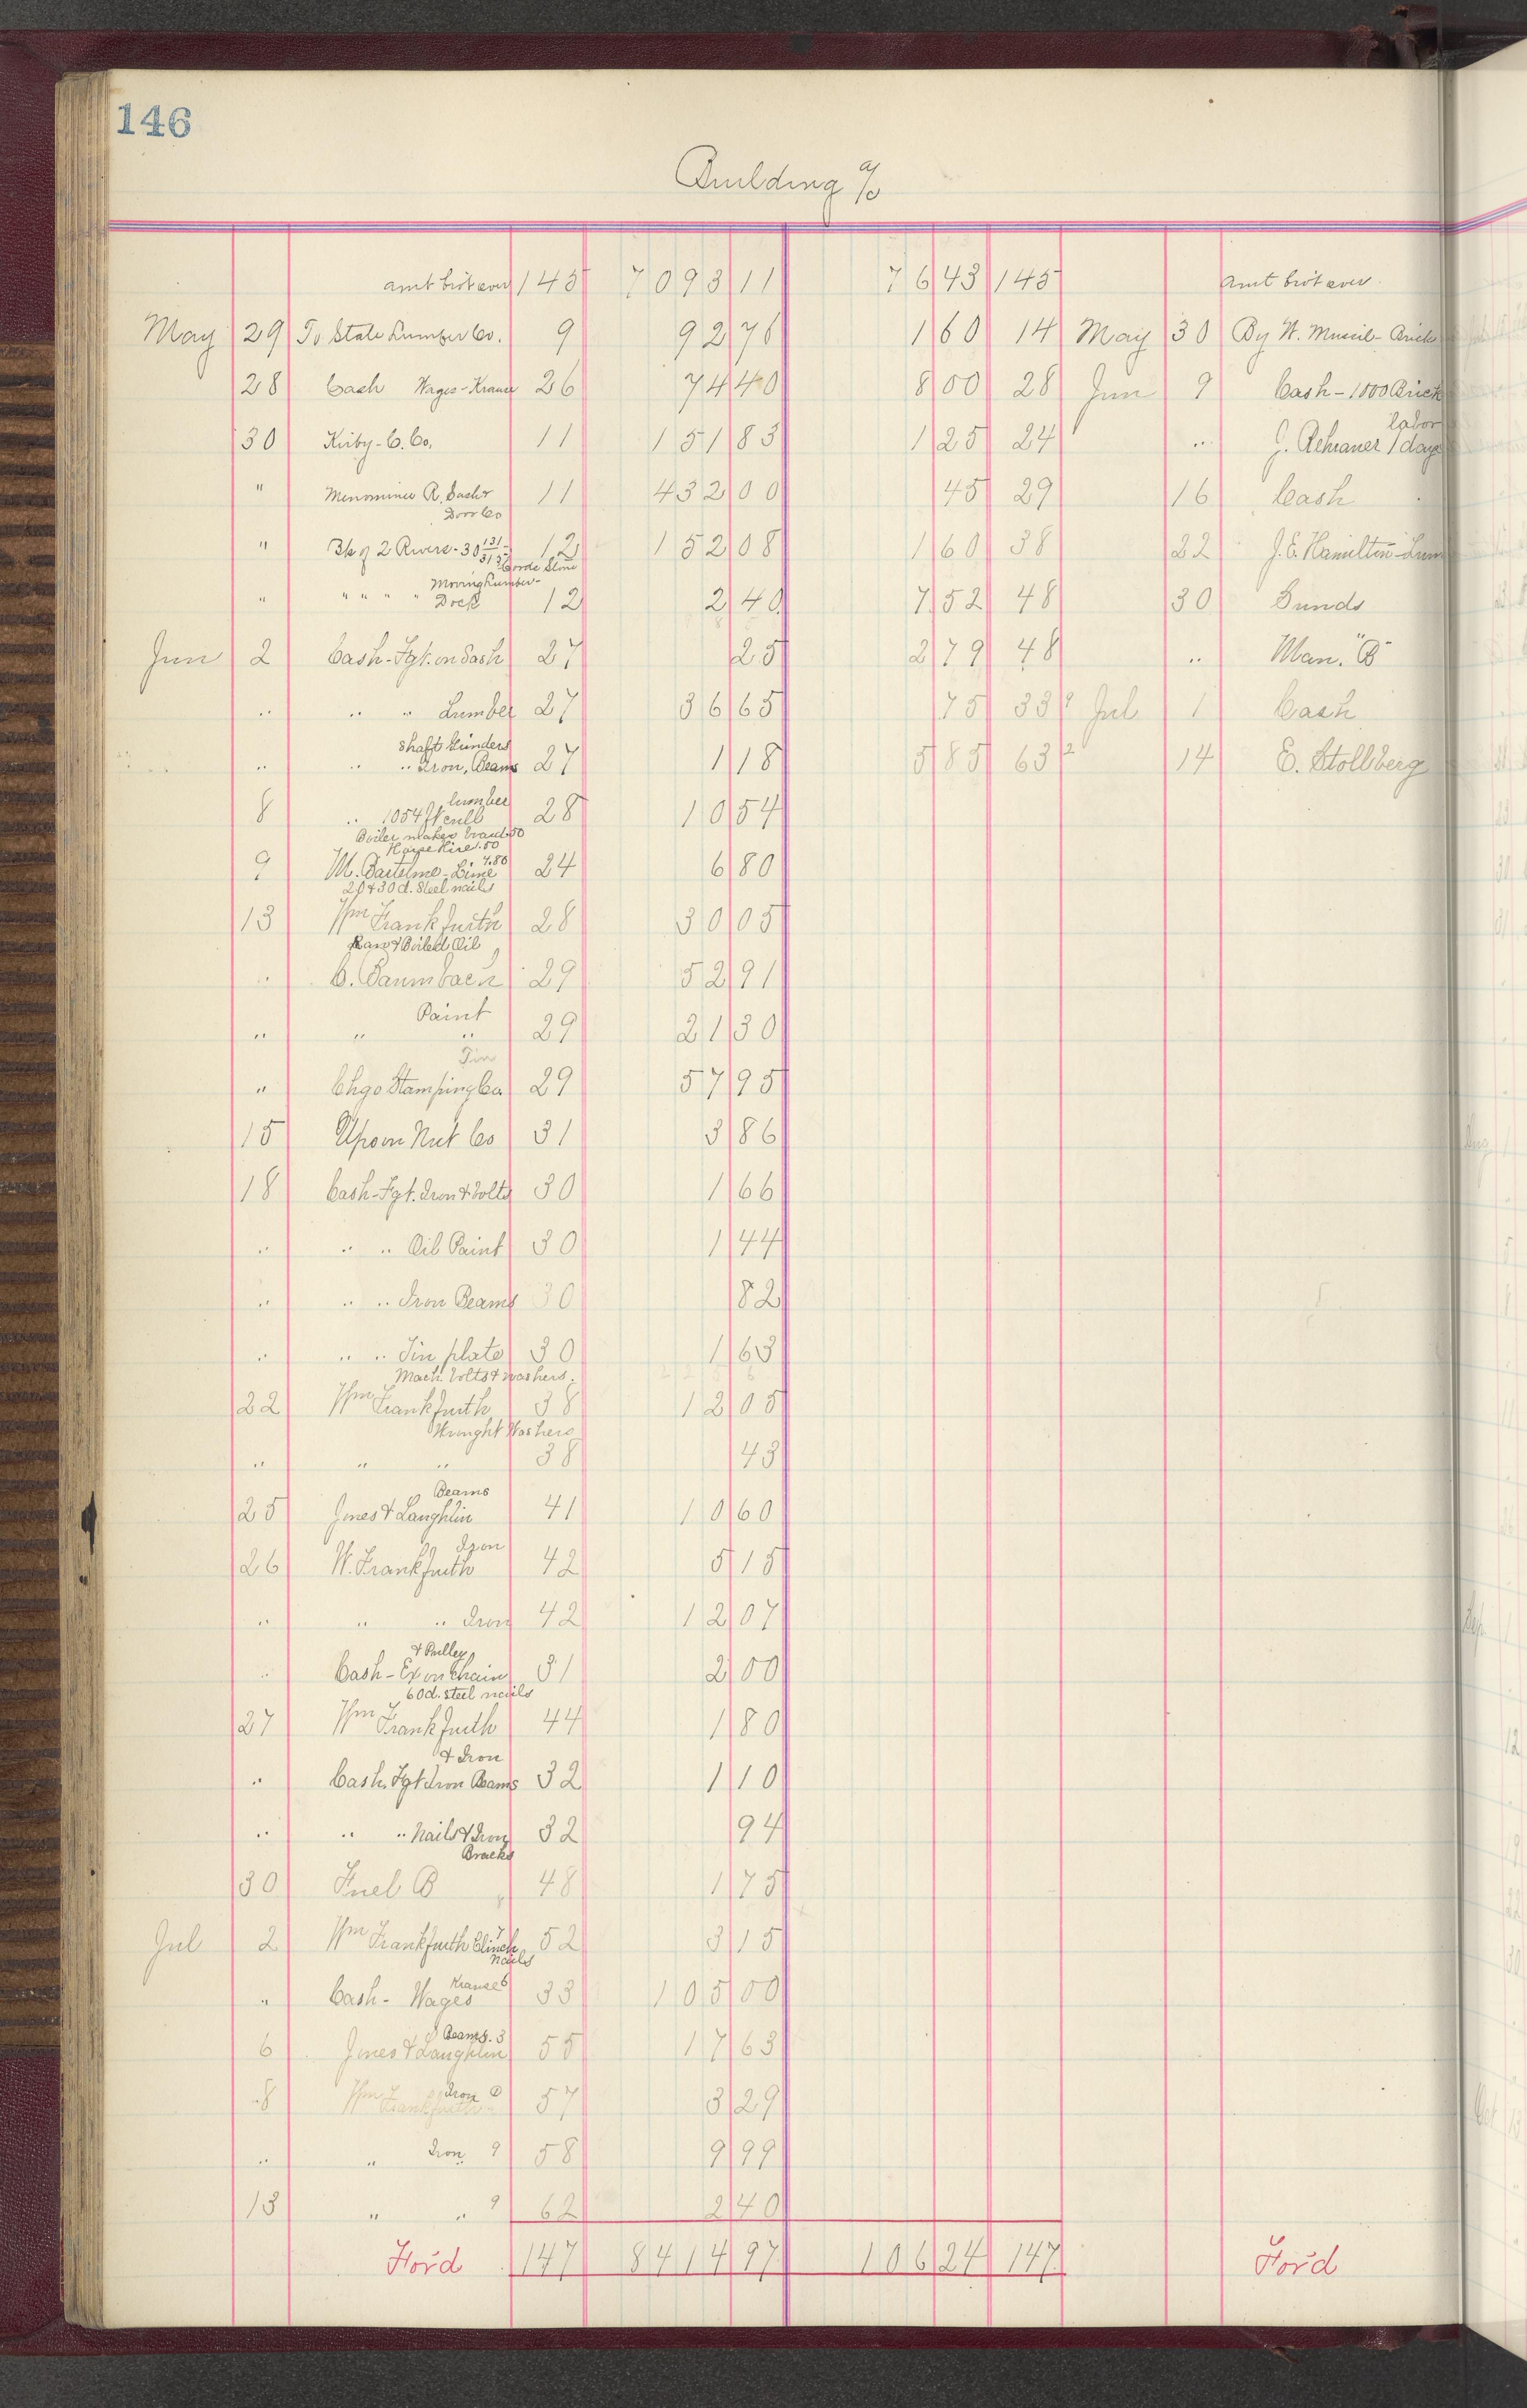 146
Building a/c
amt brot over 145 7093 11 76 43 145 amt brot over.
May 29 To State Lumber Co. 9 92 76 1 60 14 May 30 By W. Mueil - Brick
28 Cash Wages - Krause 26 74 40 8 00 28 Jun 9 Cash - 1000 Brick
30 Kirby - C. Co. 11 151 83 1 25 24 " J. Rehraner 1 day labor
" Menominee R. Sash & Door Co 11 432 00 45 29 16 Cash
" Bk of 2 Rivers - 30 131/313 Cords Stone 12 152 08 1 60 38 22 J. E. Hamilton - Lum
" " " " " Moving Lumber - Dock 12 2 40 7 52 48 30 Sunds
Jun 2 Cash - Fgt. on Sash 27 25 2 79 48 " Man. "B"
" " " Lumber 27 36 65 75 33 9 Jul 1 Cash
shaft Grinders
" " " Iron, Beams 27 1 18 5 85 63 2 14 E. Stollberg
8 " 1054 ft cull lumber 28 10 54
Boiler maker 50
Horse Hire 1.50
9 M. Bartelme - Lime 4.80 24 6 80
20 & 30 d. Steel nails
13 Wm Frankfurth 28 30 05
Raw & Boiled Oil
" B. Baumbach 29 52 91
Paint
" " " 29 21 30
Tin
" Chgo Stamping Co. 29 57 95
15 Upson Nut Co 31 3 86
18 Cash - Fgt. Iron & bolts 30 1 66
" " " Oil Paint 30 1 44
" " " Iron Beams 30 82
" " " Tin plate 30 1 63
Mach. bolts & washers.
22 Wm Frankfurth 38 12 05
Wrought Washers
" " " 38 43
Beams
25 Jones & Laughlin 41 10 60
Iron
26 W. Frankfurth 42 5 15
" " " Iron 42 12 07
& Pulley
" Cash - Ex on chain 31 2 00
60d. steel nails
27 Wm Frankfurth 44 1 80
& Iron
" Cash. Fgt Iron Beams 32 1 10
" " " Nails & Iron 32 94
Bracks
30 Fuel B 48 1 75
Jul 2 Wm Frankfurth Clinch nails 52 3 15
" Cash - Wages Krause 6 33 105 00
Beams. 3
6 Jones & Laughlin 55 17 63
8 Wm Frankfurth Iron 57 3 29
" " Iron 9 58 9 99
13 " " 9 62 2 40
For'd 147 8414 97 106 24 147 For'd